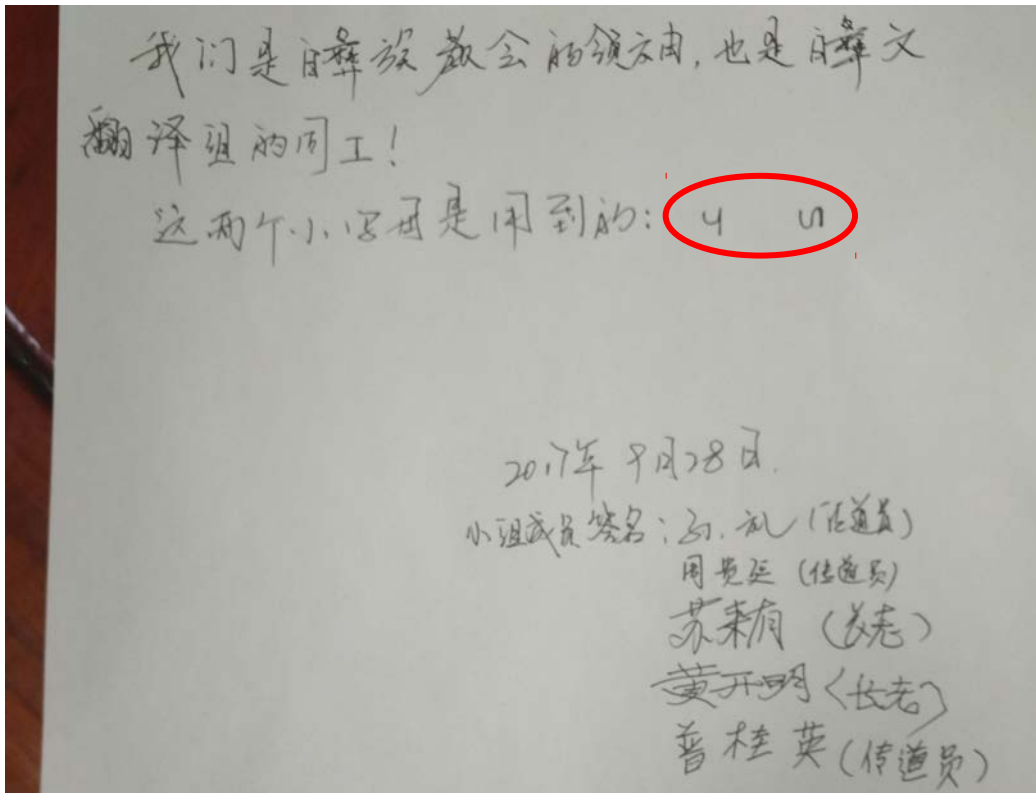 我们是白彝族教会的领袖,也是白彝文
翻译组的同工!
这两个小字母是用到的: ꓶ ꓵ
2017年9月28日.
小组成员签名: (传道员)
周贵廷 (传道员)
苏来有 (长老)
黄开明 (长老)
普桂英 (传道员)